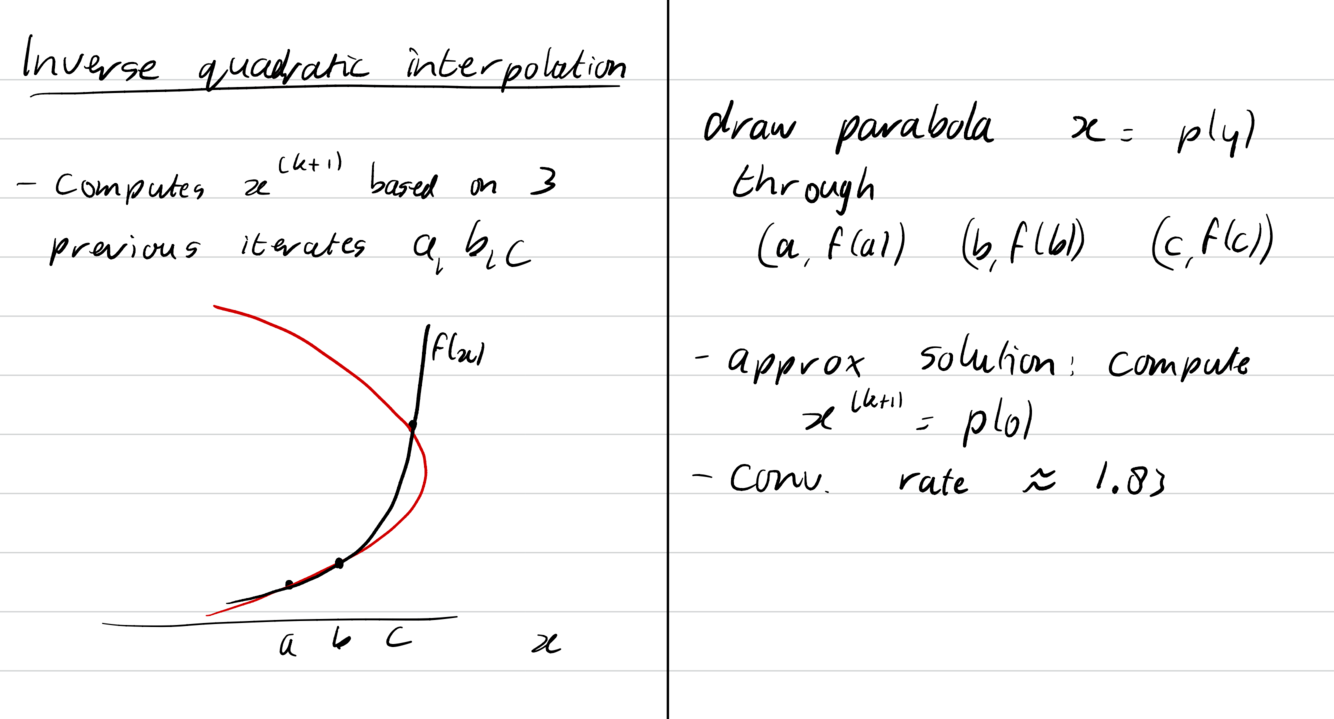 Inverse quadratic interpolation
- Computes x^(k+1) based on 3
previous iterates a, b, c
f(x)
a b c x
draw parabola x = p(y)
through
(a, f(a)) (b, f(b)) (c, f(c))
- approx solution: compute
x^(k+1) = p(0)
- Conv. rate ≈ 1.83